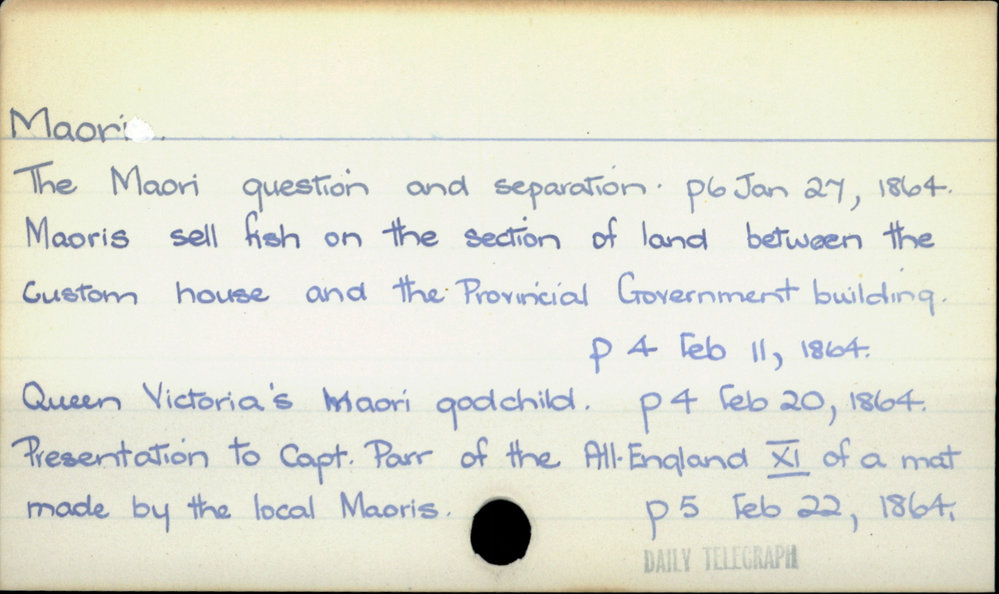 Maoris.
The Maori question and separation. p6 Jan 27, 1864.
Maoris sell fish on the section of land between the
Custom house and the Provincial Government building.
p 4 Feb 11, 1864.
Queen Victoria's Maori godchild. p 4 Feb 20, 1864.
Presentation to Capt. Parr of the All-England XI of a mat
made by the local Maoris. p 5 Feb 22, 1864.
DAILY TELEGRAPH